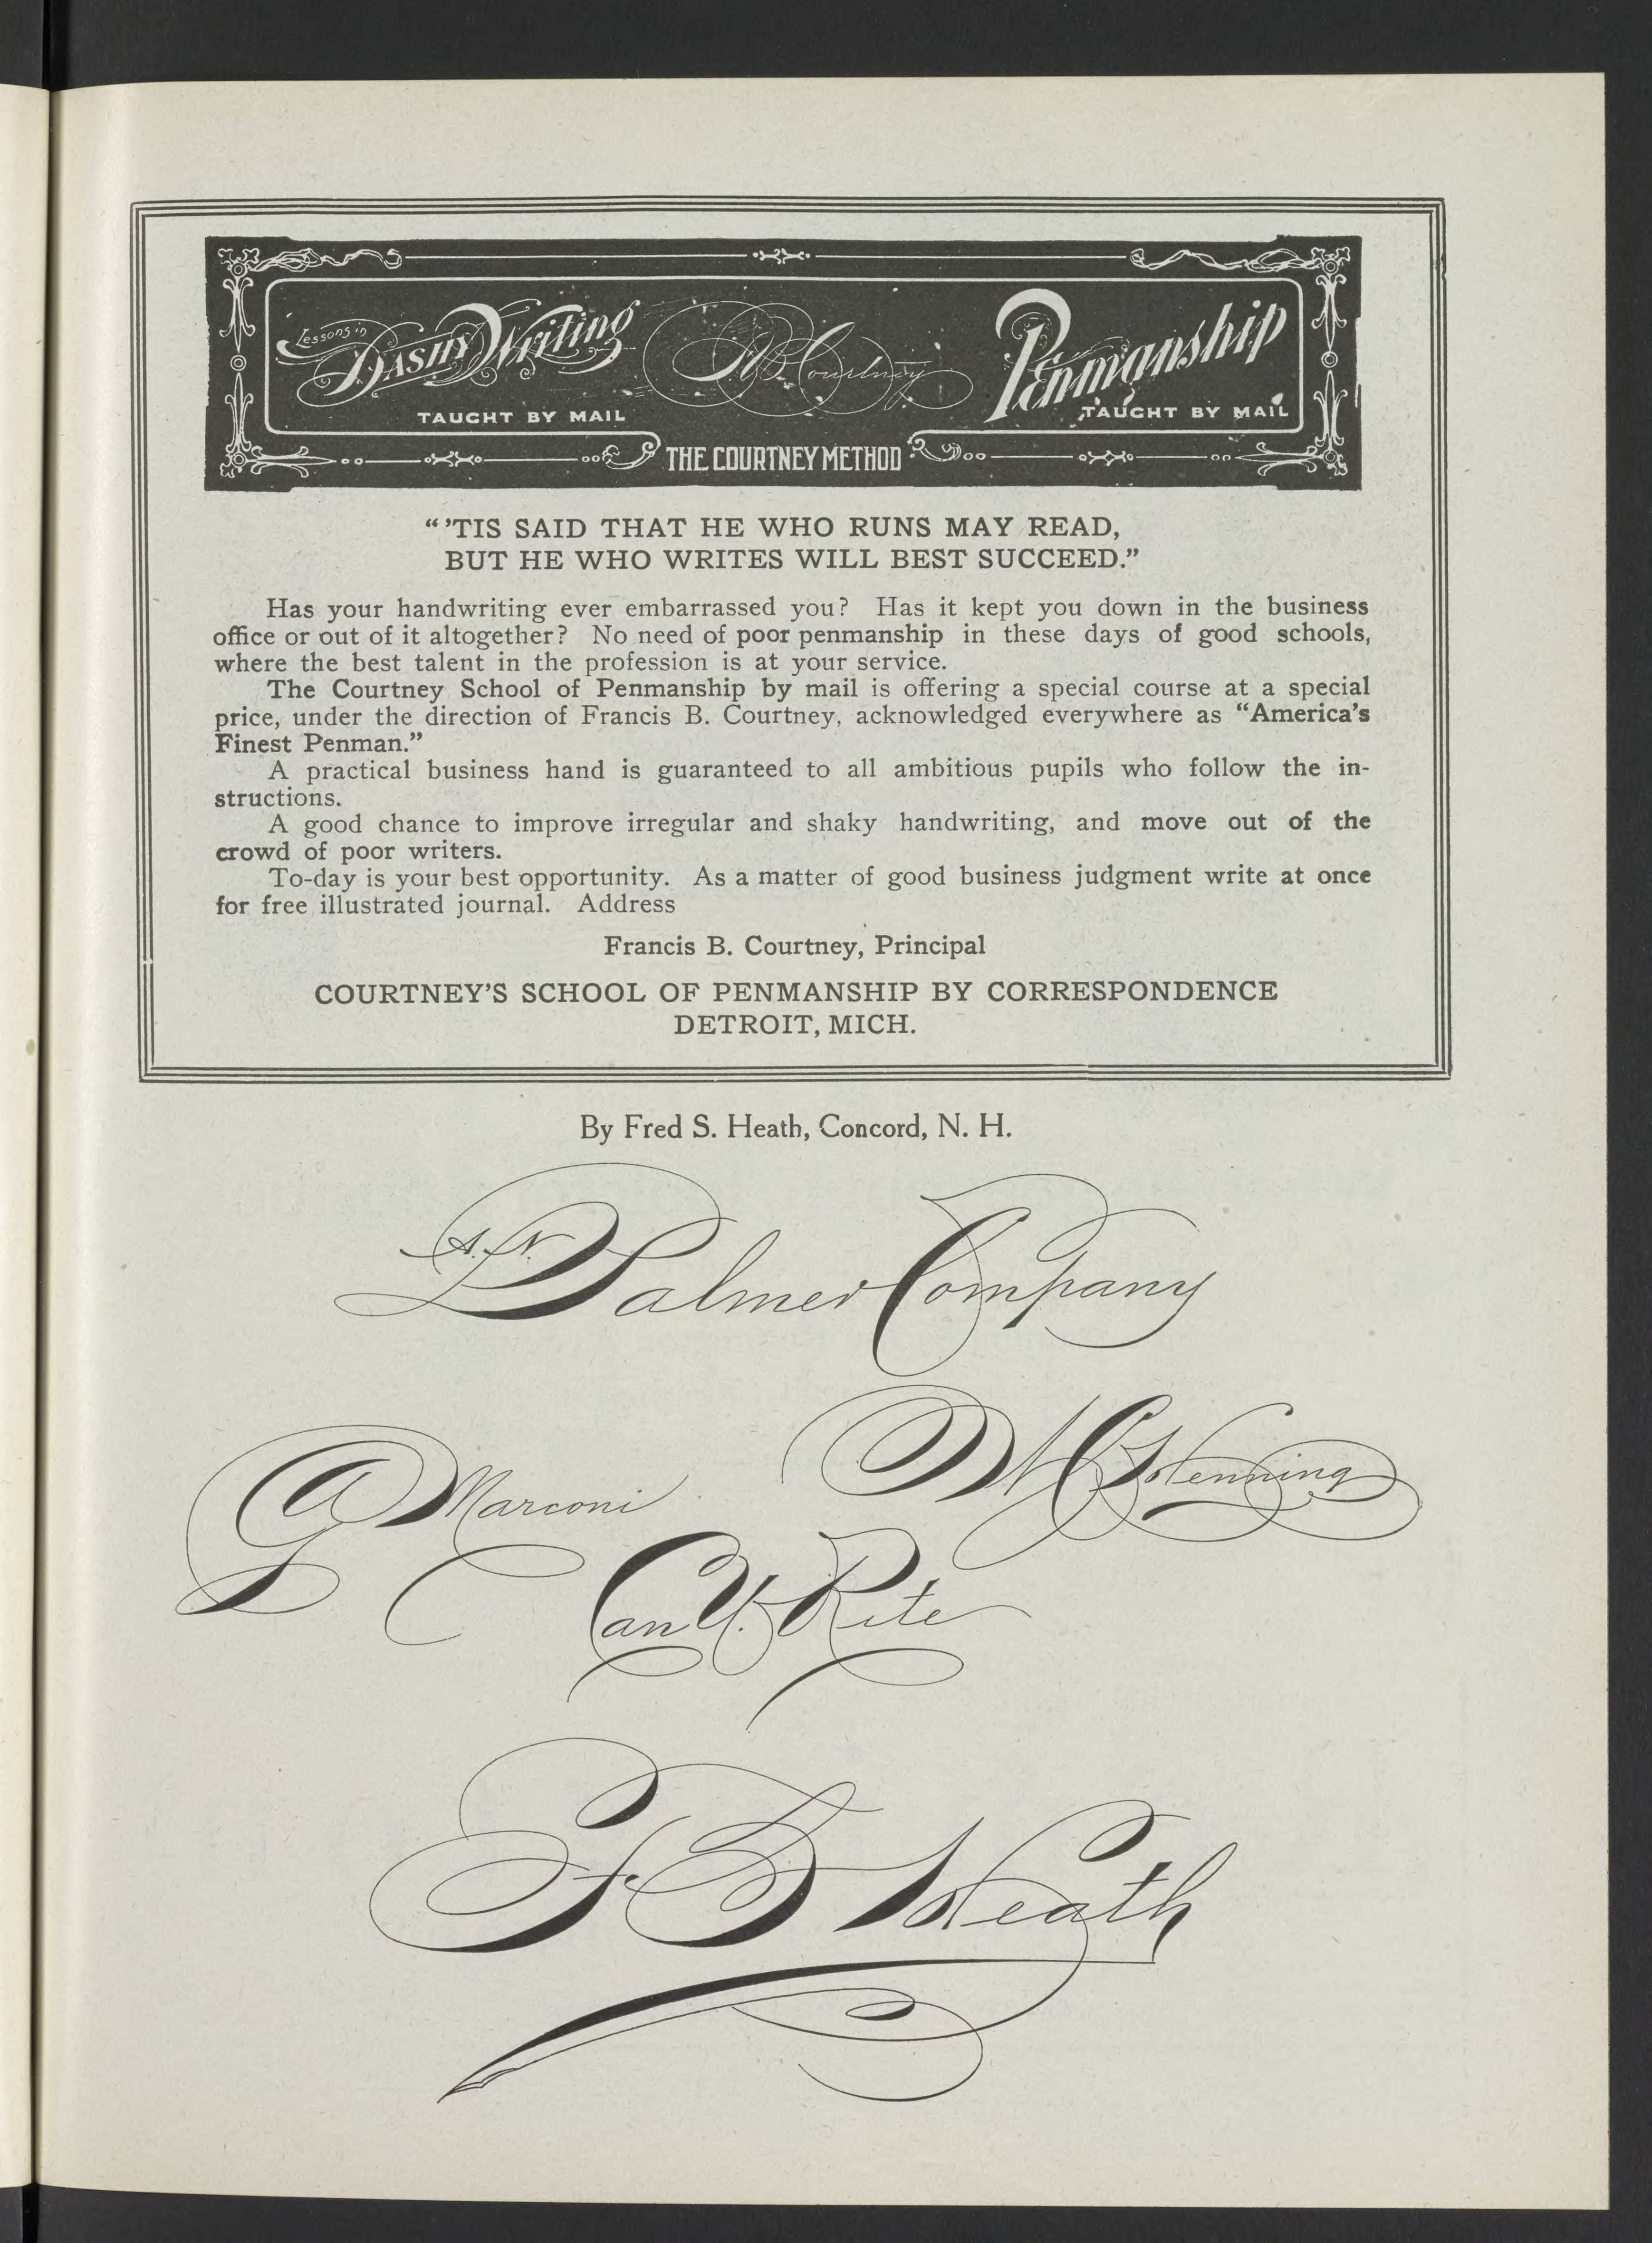 Lessons in
DASHY Writing
TAUGHT BY MAIL
Courtney
Penmanship
TAUGHT BY MAIL
THE COURTNEY METHOD
“ ’TIS SAID THAT HE WHO RUNS MAY READ,
BUT HE WHO WRITES WILL BEST SUCCEED.”
Has your handwriting ever embarrassed you? Has it kept you down in the business
office or out of it altogether? No need of poor penmanship in these days of good schools,
where the best talent in the profession is at your service.
The Courtney School of Penmanship by mail is offering a special course at a special
price, under the direction of Francis B. Courtney, acknowledged everywhere as “America’s
Finest Penman.”
A practical business hand is guaranteed to all ambitious pupils who follow the in-
structions.
A good chance to improve irregular and shaky handwriting, and move out of the
crowd of poor writers.
To-day is your best opportunity. As a matter of good business judgment write at once
for free illustrated journal. Address
Francis B. Courtney, Principal
COURTNEY’S SCHOOL OF PENMANSHIP BY CORRESPONDENCE
DETROIT, MICH.
By Fred S. Heath, Concord, N. H.
A. N. Palmer Company
G Marconi
Henning
Can U. Rite
Heath